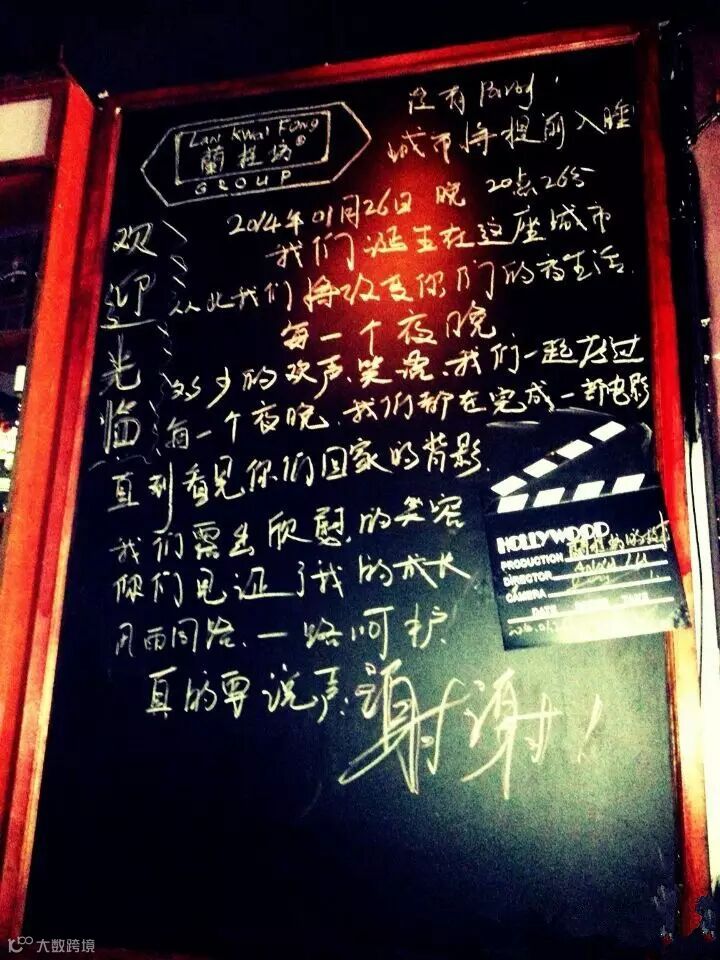 Lan Kwai Fong
蘭桂坊®
GROUP
没有Party
城市将提前入睡
欢迎光临
2014年01月26日 晚 20点26分
我们诞生在这座城市
从此我们将改变你们的夜生活.
每一个夜晚
多少的欢声、笑语、我们一起度过
每一个夜晚、我们都在完成一部电影
直到看见你们回家的背影.
我们露出欣慰的笑容
你们见证了我的成长
风雨同路、一路呵护
真的要说声:谢谢!
HOLLYWOOD
PRODUCTION 蘭桂坊的故事
DIRECTOR
CAMERA
DATE SCENE TAKE
大数跨境